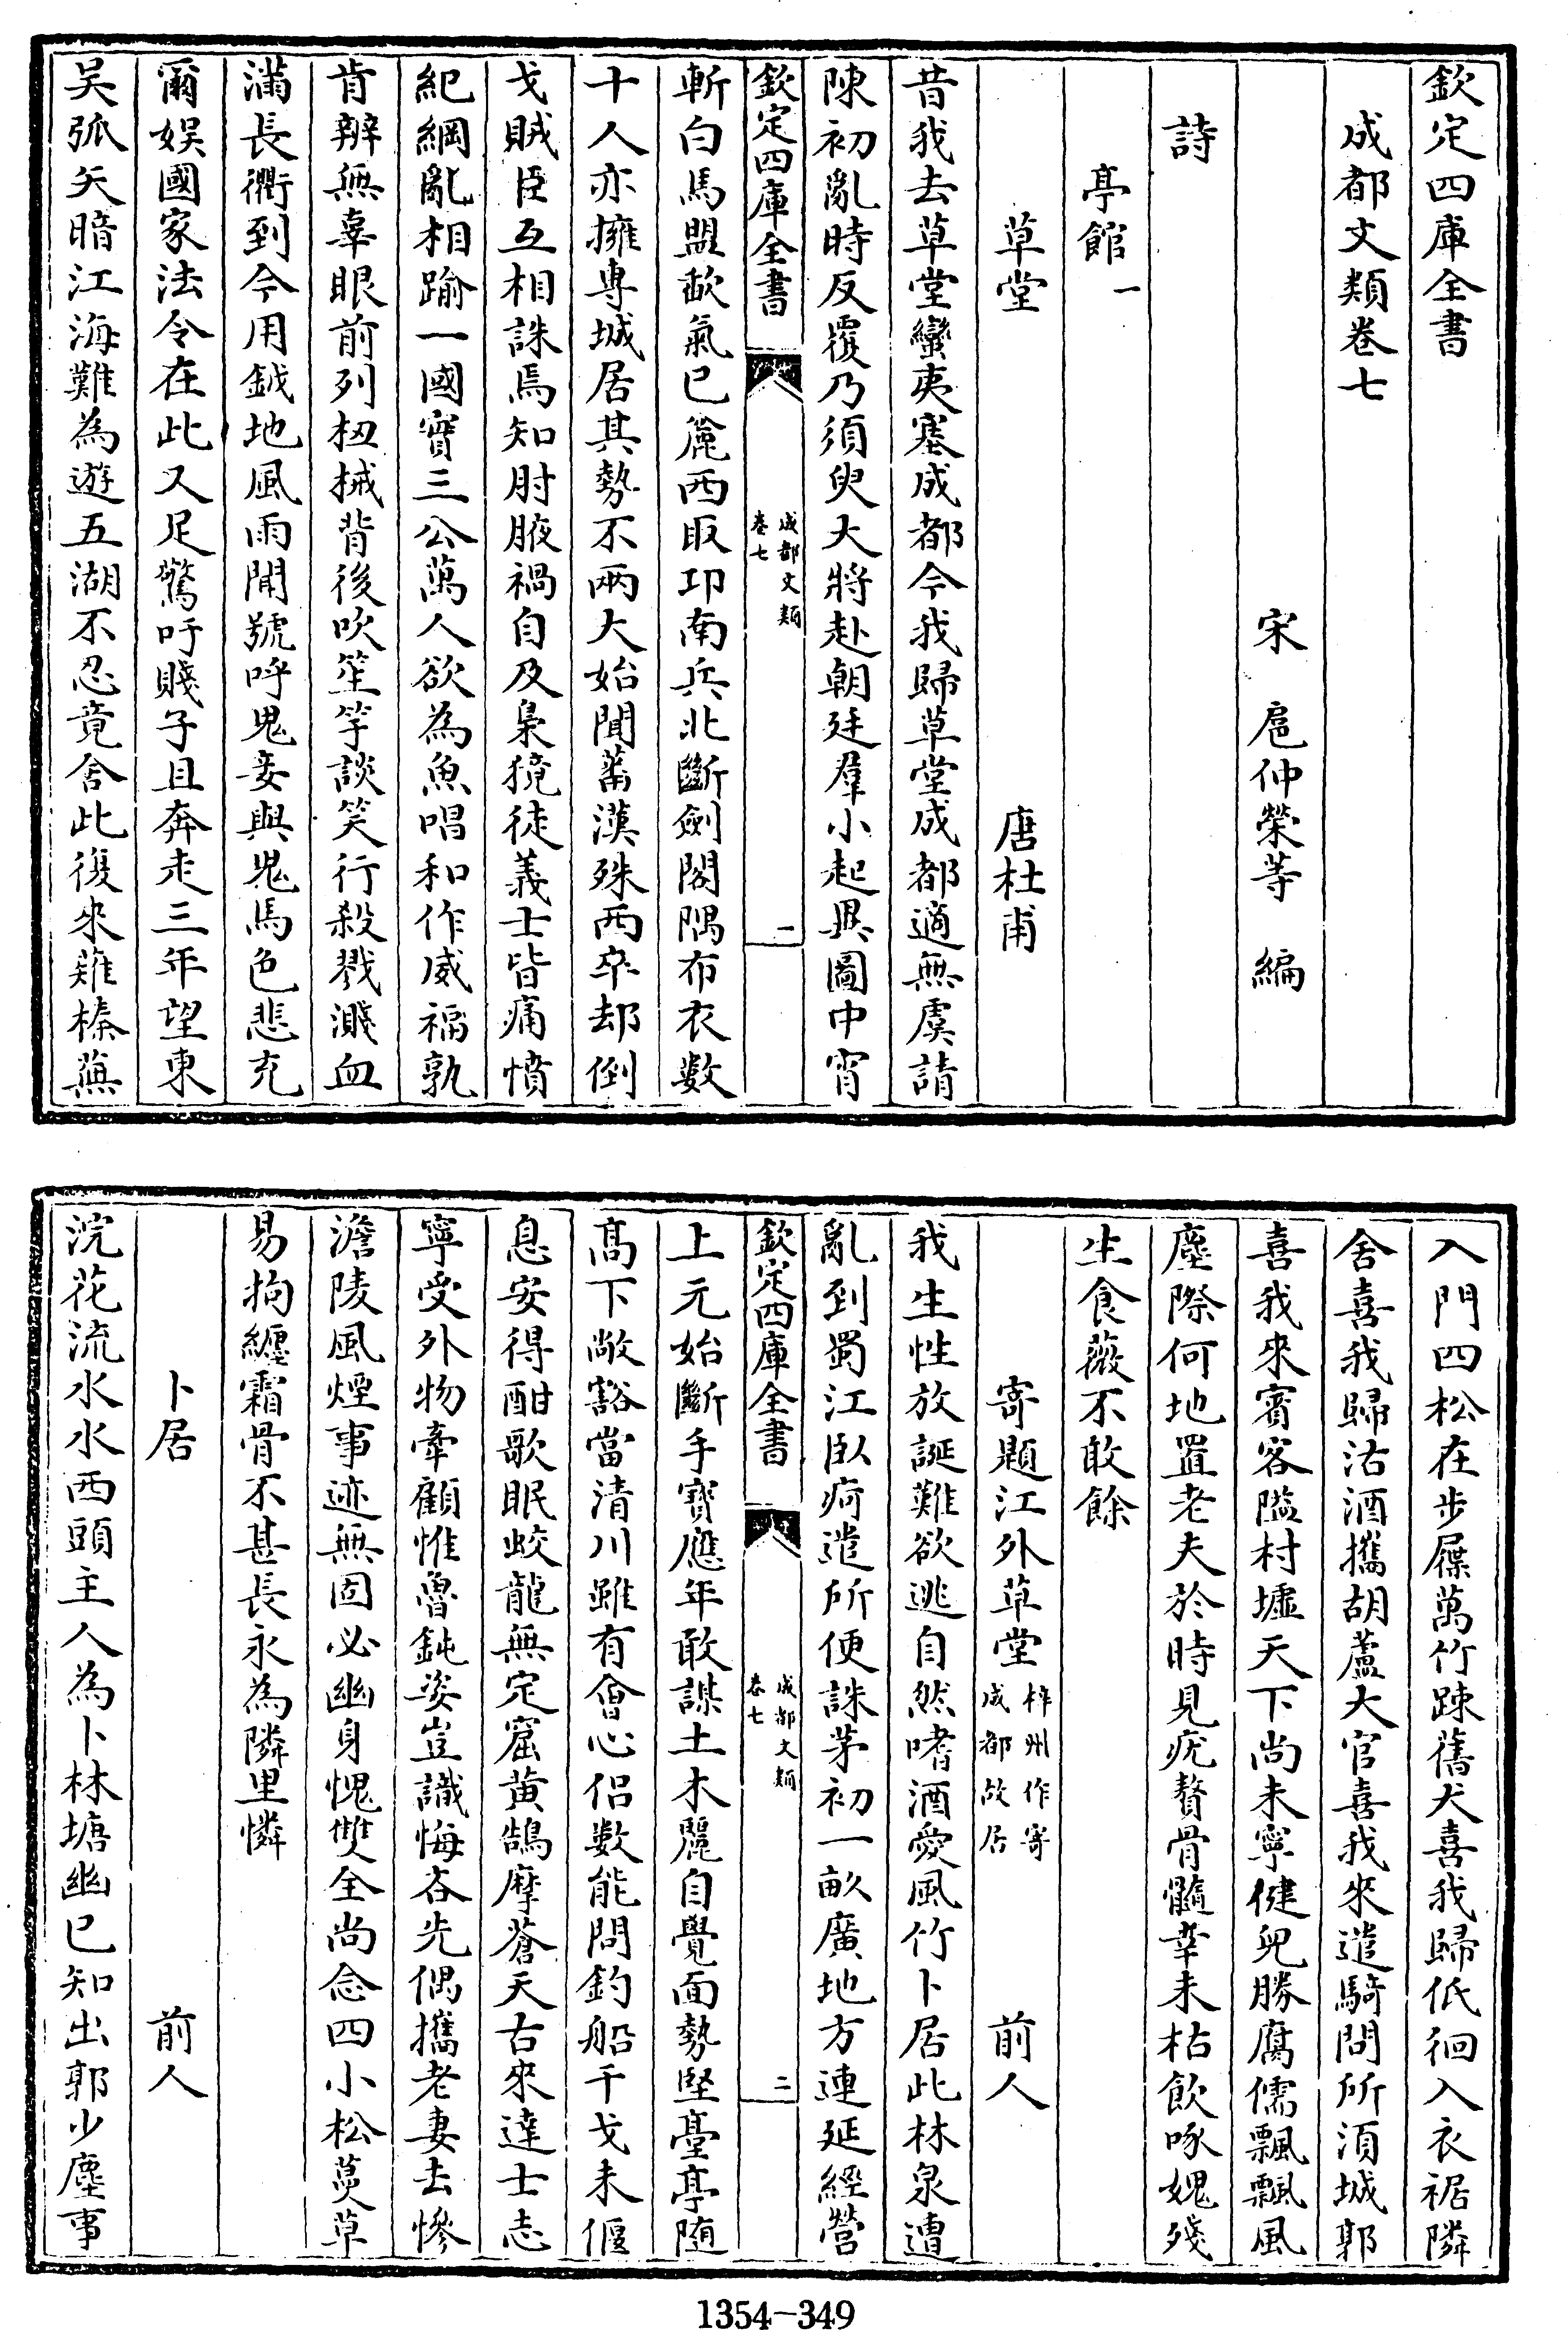 欽定四庫全書
成都文類卷七
宋 扈仲榮等 編
詩
亭館一
草堂 唐杜甫
昔我去草堂蠻夷塞成都今我歸草堂成都適無虞請
陳初亂時反覆乃須臾大將赴朝廷羣小起異圖中宵
欽定四庫全書
成都文類
卷七
一
斬白馬盟歃氣已麄西取邛南兵北斷劍閣隅布衣數
十人亦擁專城居其勢不兩大始聞蕃漢殊西卒却倒
戈賊臣互相誅焉知肘腋禍自及梟獍徒義士皆痛憤
紀綱亂相踰一國實三公萬人欲為魚唱和作威福孰
肯辨無辜眼前列杻械背後吹笙竽談笑行殺戮濺血
滿長衢到今用鉞地風雨聞號呼鬼妾與鬼馬色悲充
爾娛國家法令在此又足驚吁賤子且奔走三年望東
吳弧矢暗江海難為遊五湖不忍竟舍此復來薙榛蕪
入門四松在步屧萬竹疎舊犬喜我歸低徊入衣裾隣
舍喜我歸沽酒攜胡蘆大官喜我來遣騎問所須城郭
喜我來賓客隘村墟天下尚未寧健兒勝腐儒飄飄風
塵際何地置老夫於時見疣贅骨髓幸未枯飲啄媿殘
生食薇不敢餘
寄題江外草堂 梓州作寄
成都故居 前人
我生性放誕難欲逃自然嗜酒愛風竹卜居此林泉遭
亂到蜀江臥疴遣所便誅茅初一畝廣地方連延經營
欽定四庫全書
成都文類
卷七
二
上元始斷手寶應年敢謀土木麗自覺面勢堅臺亭随
髙下敞豁當清川雖有會心侶數能問釣船干戈未偃
息安得酣歌眠蛟龍無定窟黄鵠摩蒼天古來達士志
寧受外物牽顧惟魯鈍姿豈識悔吝先偶攜老妻去慘
澹陵風煙事迹無固必幽身愧雙全尚念四小松蔓草
易拘纏霜骨不甚長永為隣里憐
卜居 前人
浣花流水水西頭主人為卜林塘幽已知出郭少塵事
1354-349